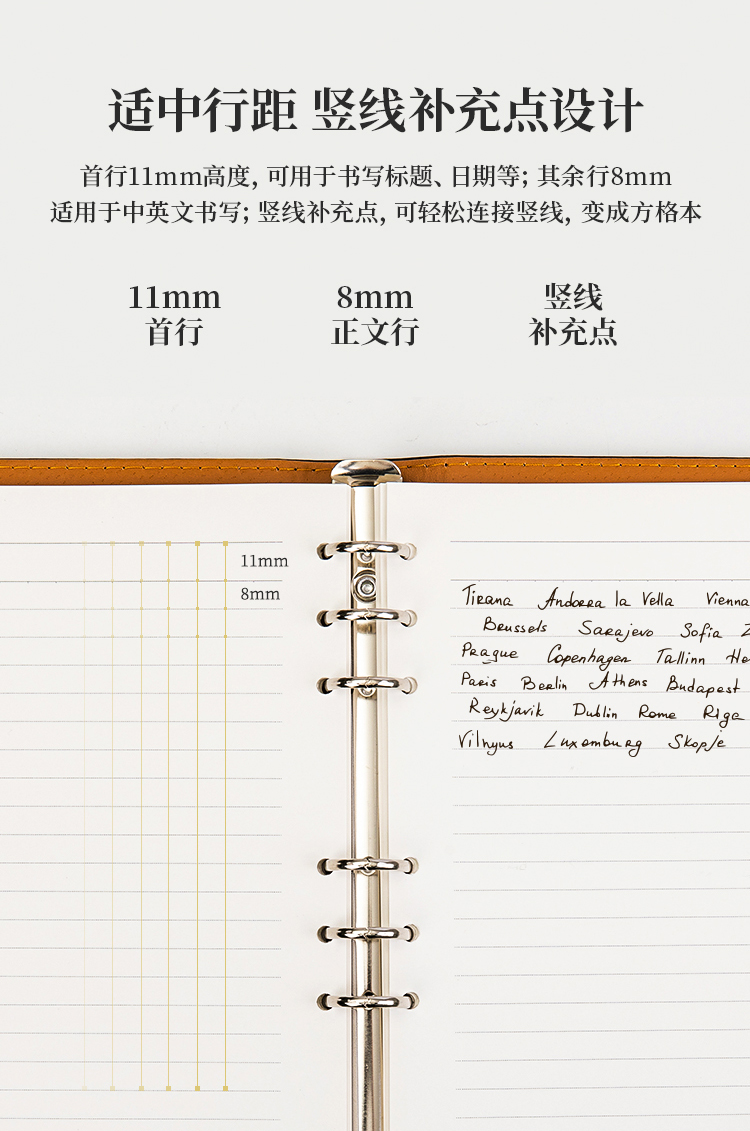 适中行距 竖线补充点设计
首行11mm高度, 可用于书写标题、日期等; 其余行8mm
适用于中英文书写; 竖线补充点, 可轻松连接竖线, 变成方格本
11mm 8mm 竖线
首行 正文行 补充点
11mm
8mm
Tirana Andorra la Vella Vienna
Brussels Sarajevo Sofia
Prague Copenhagen Tallinn
Paris Berlin Athens Budapest
Reykjavik Dublin Rome Riga
Vilnyus Luxemburg Skopje